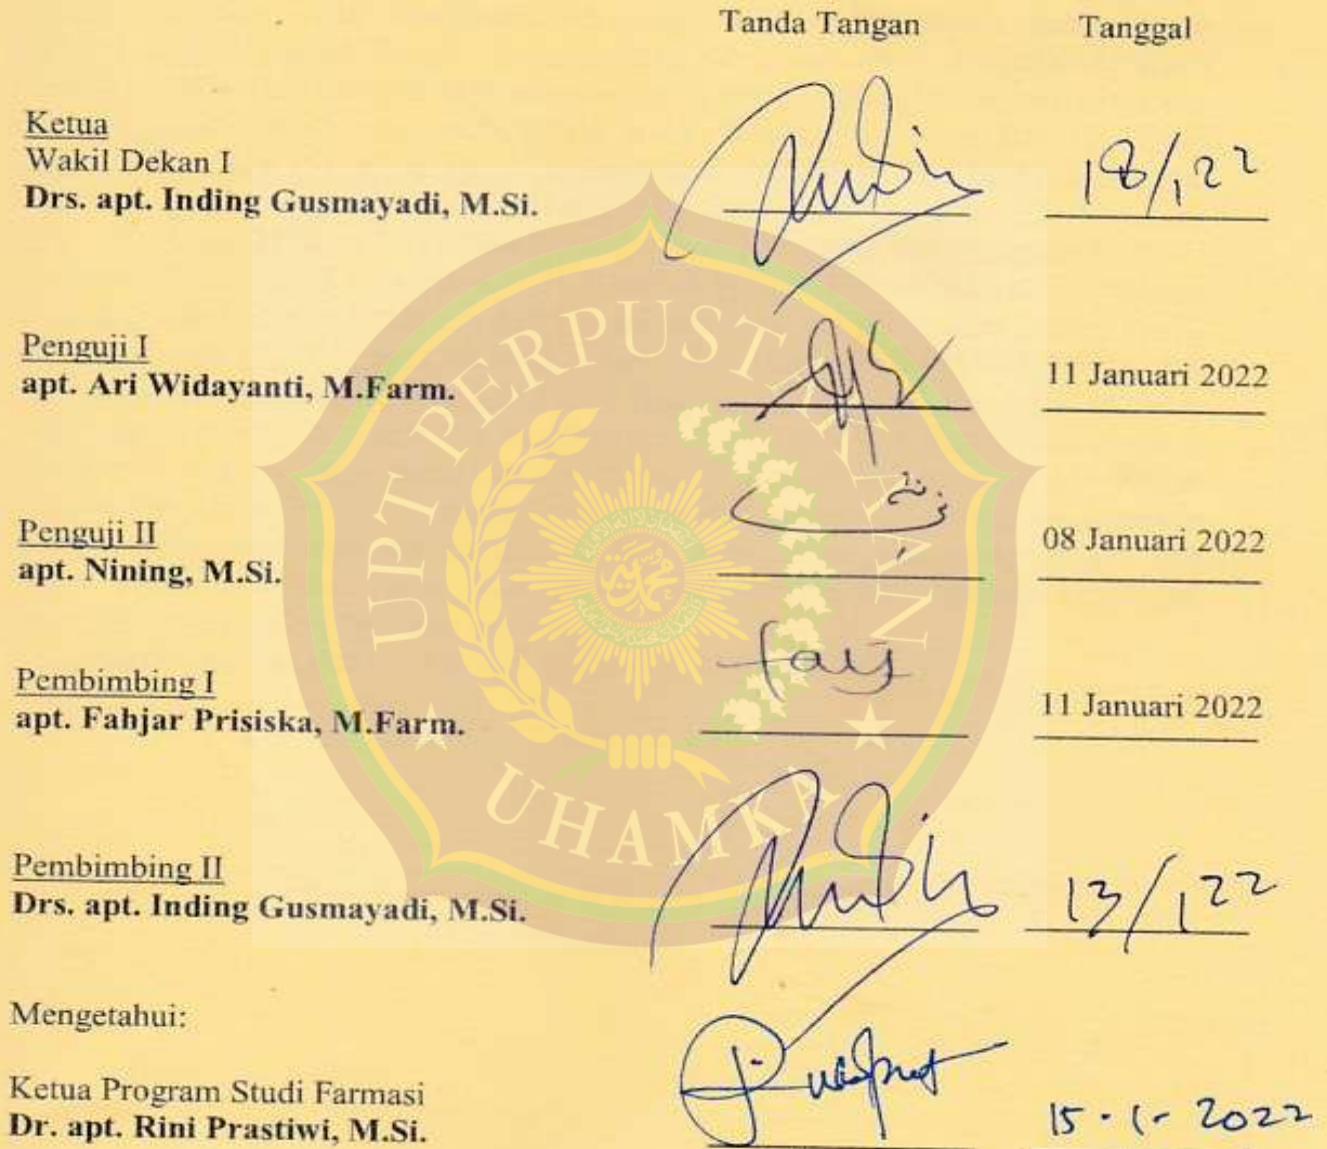 Tanda Tangan Tanggal
Ketua
Wakil Dekan I
Drs. apt. Inding Gusmayadi, M.Si.
18/1 22
Penguji I
apt. Ari Widayanti, M.Farm.
11 Januari 2022
Penguji II
apt. Nining, M.Si.
08 Januari 2022
Pembimbing I
apt. Fahjar Prisiska, M.Farm.
11 Januari 2022
Pembimbing II
Drs. apt. Inding Gusmayadi, M.Si.
13/1 22
Mengetahui:
Ketua Program Studi Farmasi
Dr. apt. Rini Prastiwi, M.Si.
15-1-2022
UPT PERPUSTAKAAN
UHAMKA